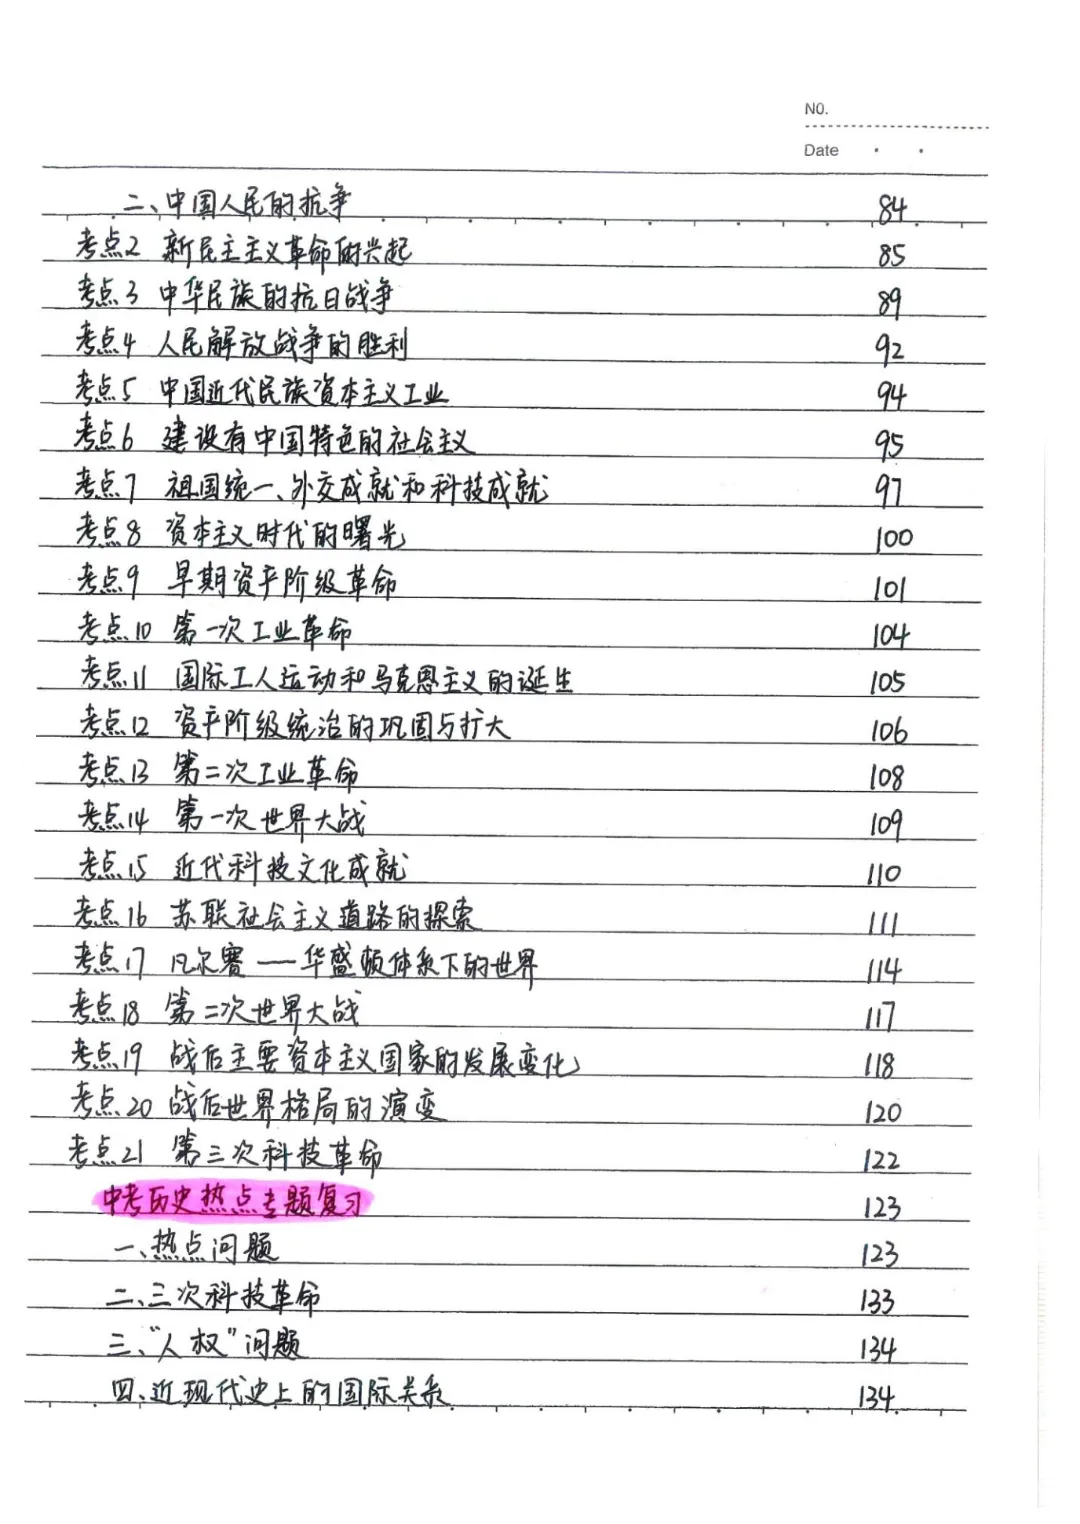 NO.
Date
二、中国人民的抗争 84
考点2 新民主主义革命的兴起 85
考点3 中华民族的抗日战争 89
考点4 人民解放战争的胜利 92
考点5 中国近代民族资本主义工业 94
考点6 建设有中国特色的社会主义 95
考点7 祖国统一、外交成就和科技成就 97
考点8 资本主义时代的曙光 100
考点9 早期资产阶级革命 101
考点10 第一次工业革命 104
考点11 国际工人运动和马克思主义的诞生 105
考点12 资产阶级统治的巩固与扩大 106
考点13 第二次工业革命 108
考点14 第一次世界大战 109
考点15 近代科技文化成就 110
考点16 苏联社会主义道路的探索 111
考点17 凡尔赛——华盛顿体系下的世界 114
考点18 第二次世界大战 117
考点19 战后主要资本主义国家的发展变化 118
考点20 战后世界格局的演变 120
考点21 第三次科技革命 122
中考历史热点专题复习 123
一、热点问题 123
二、三次科技革命 133
三、“人权”问题 134
四、近现代史上的国际关系 134